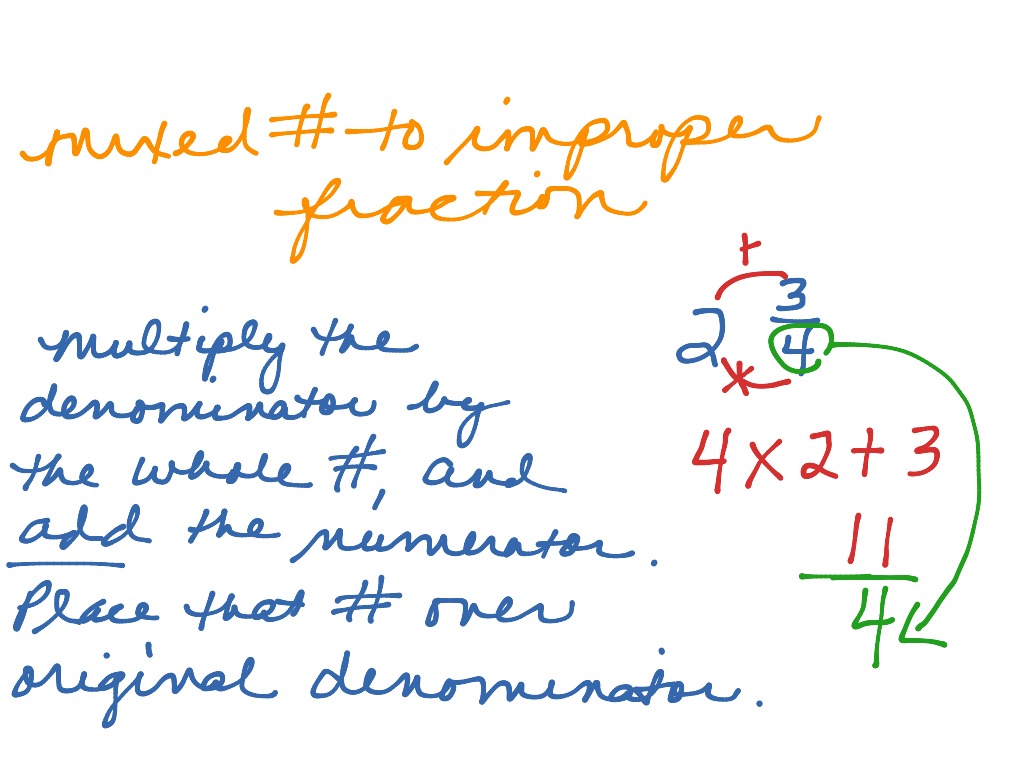 mixed # to improper
fraction
+
2 3/4
*
multiply the
denominator by
the whole #, and
add the numerator.
Place that # over
original denominator.
4 x 2 + 3
11
4